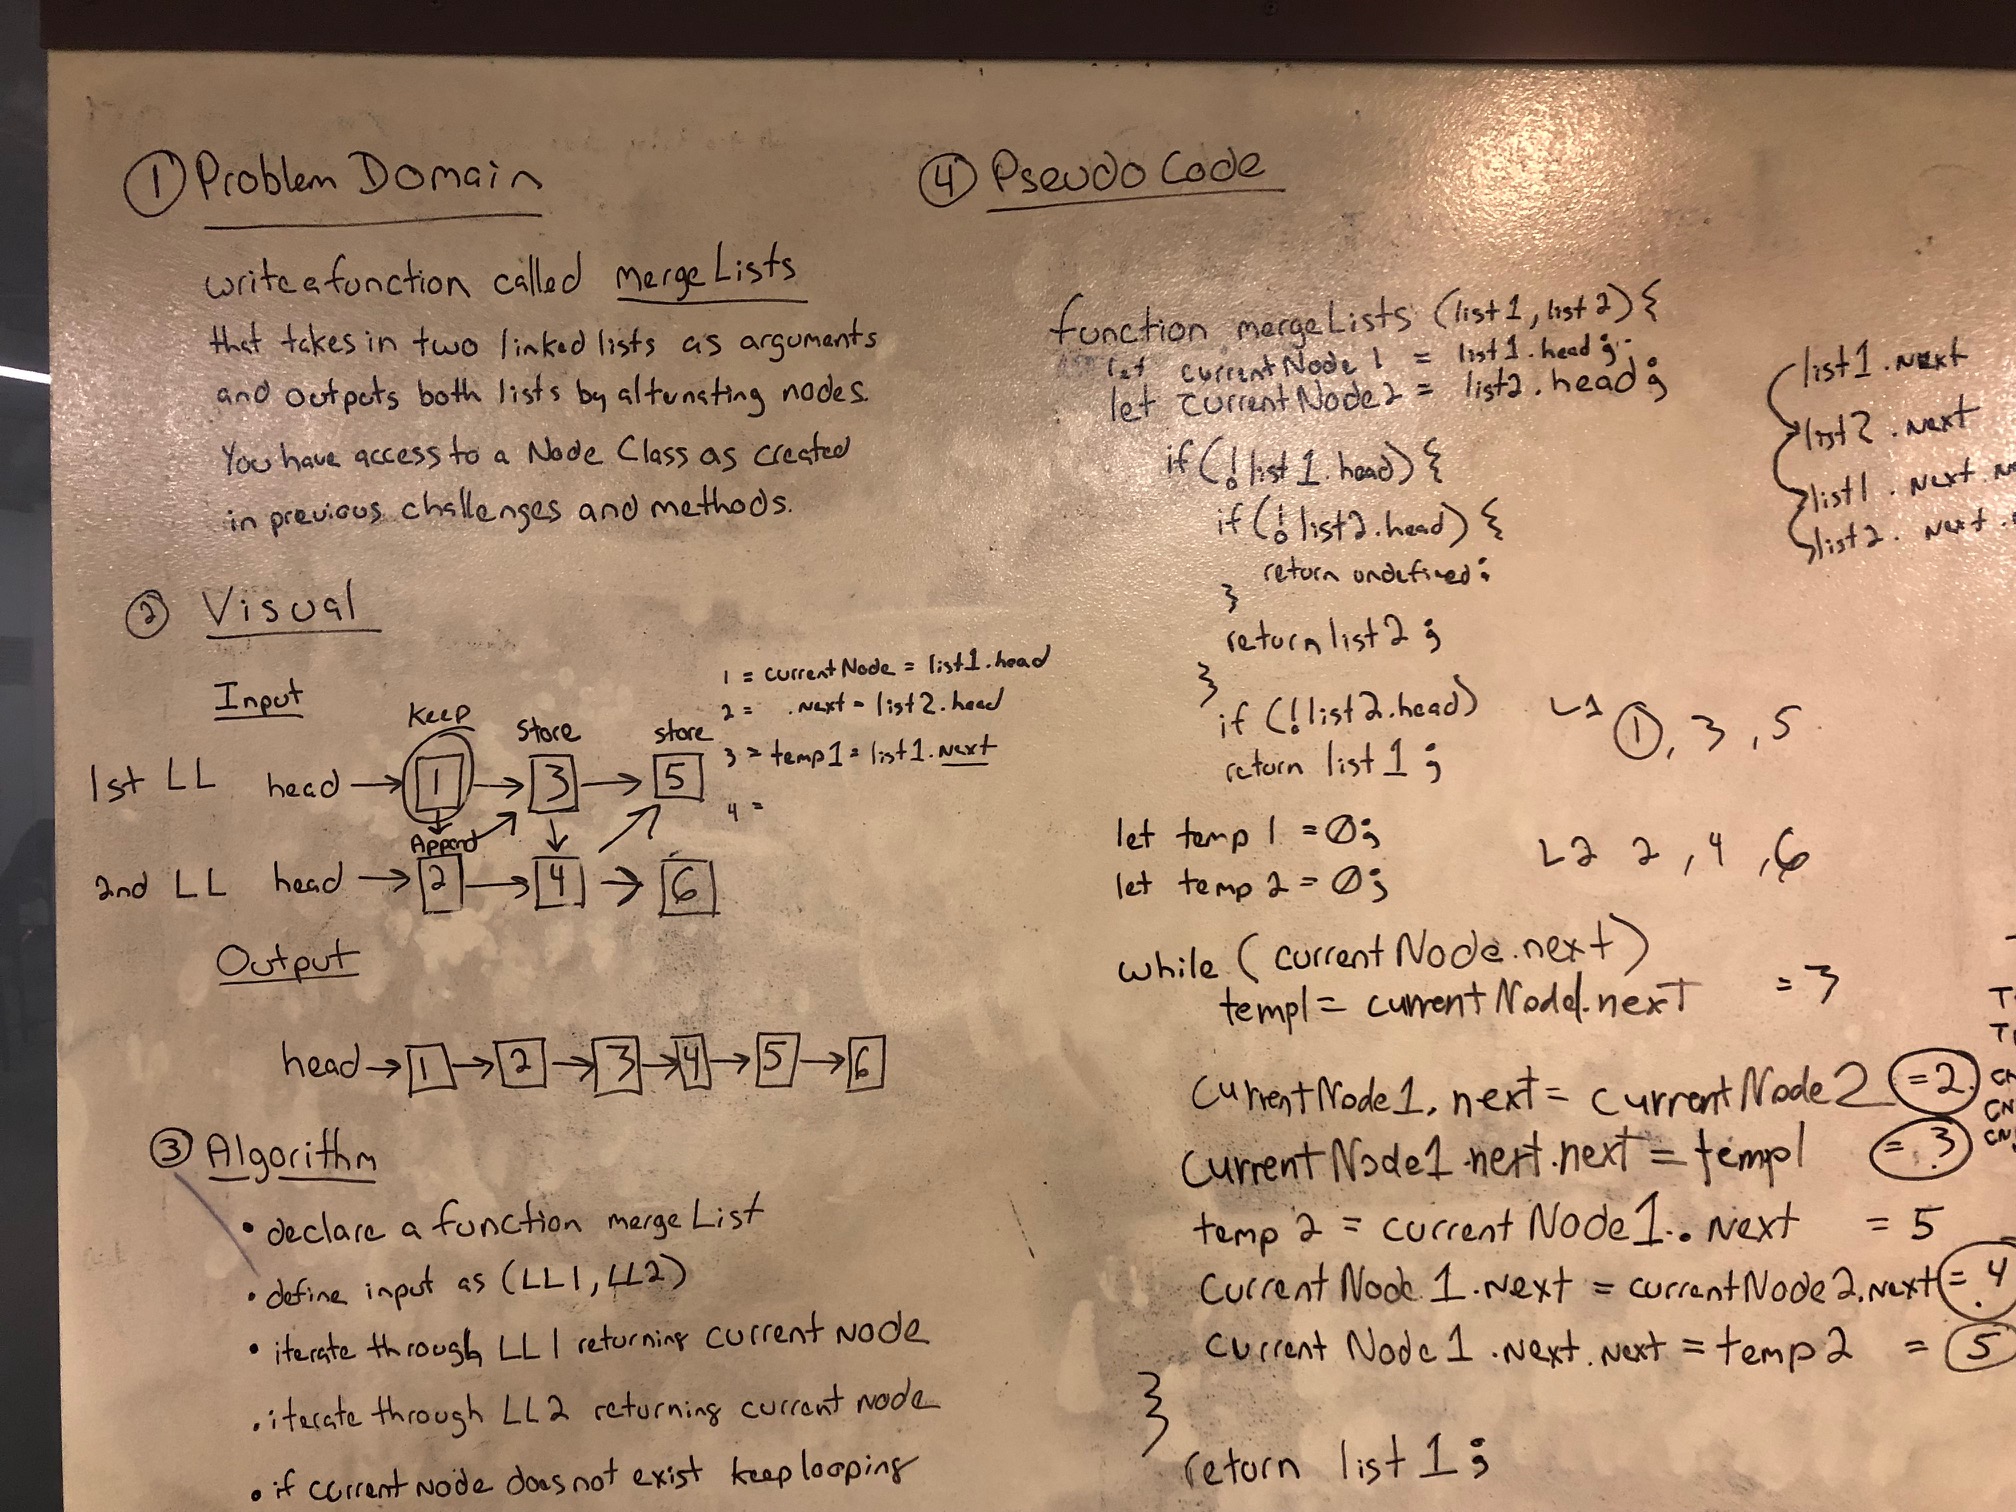 ① Problem Domain
write a function called mergeLists
that takes in two linked lists as arguments
and outputs both lists by alternating nodes.
You have access to a Node Class as created
in previous challenges and methods.
② Visual
Input
1 = currentNode = list1.head
2 = .next = list2.head
3 = temp1 = list1.next
4 =
Keep store store
1st LL head → 1 → 3 → 5
Append
2nd LL head → 2 → 4 → 6
Output
head → 1 → 2 → 3 → 4 → 5 → 6
③ Algorithm
• declare a function mergeList
• define input as (LL1, LL2)
• iterate through LL1 returning current node
• iterate through LL2 returning current node
• if current node does not exist keep looping
④ Pseudo Code
function mergeLists (list1, list2) {
let currentNode1 = list1.head;
let currentNode2 = list2.head;
if (!list1.head) {
if (!list2.head) {
return undefined;
}
return list2;
}
if (!list2.head)
return list1;
let temp1 = 0;
let temp2 = 0;
while (currentNode.next)
temp1 = currentNode1.next = 3
currentNode1.next = currentNode2 = 2
currentNode1.next.next = temp1 = 3
temp2 = currentNode1..next = 5
currentNode1.next = currentNode2.next = 4
currentNode1.next.next = temp2 = 5
}
return list1;
list1.next
list2.next
list1.next.
list2.next.
L1 ①, 3, 5
L2 2, 4, 6